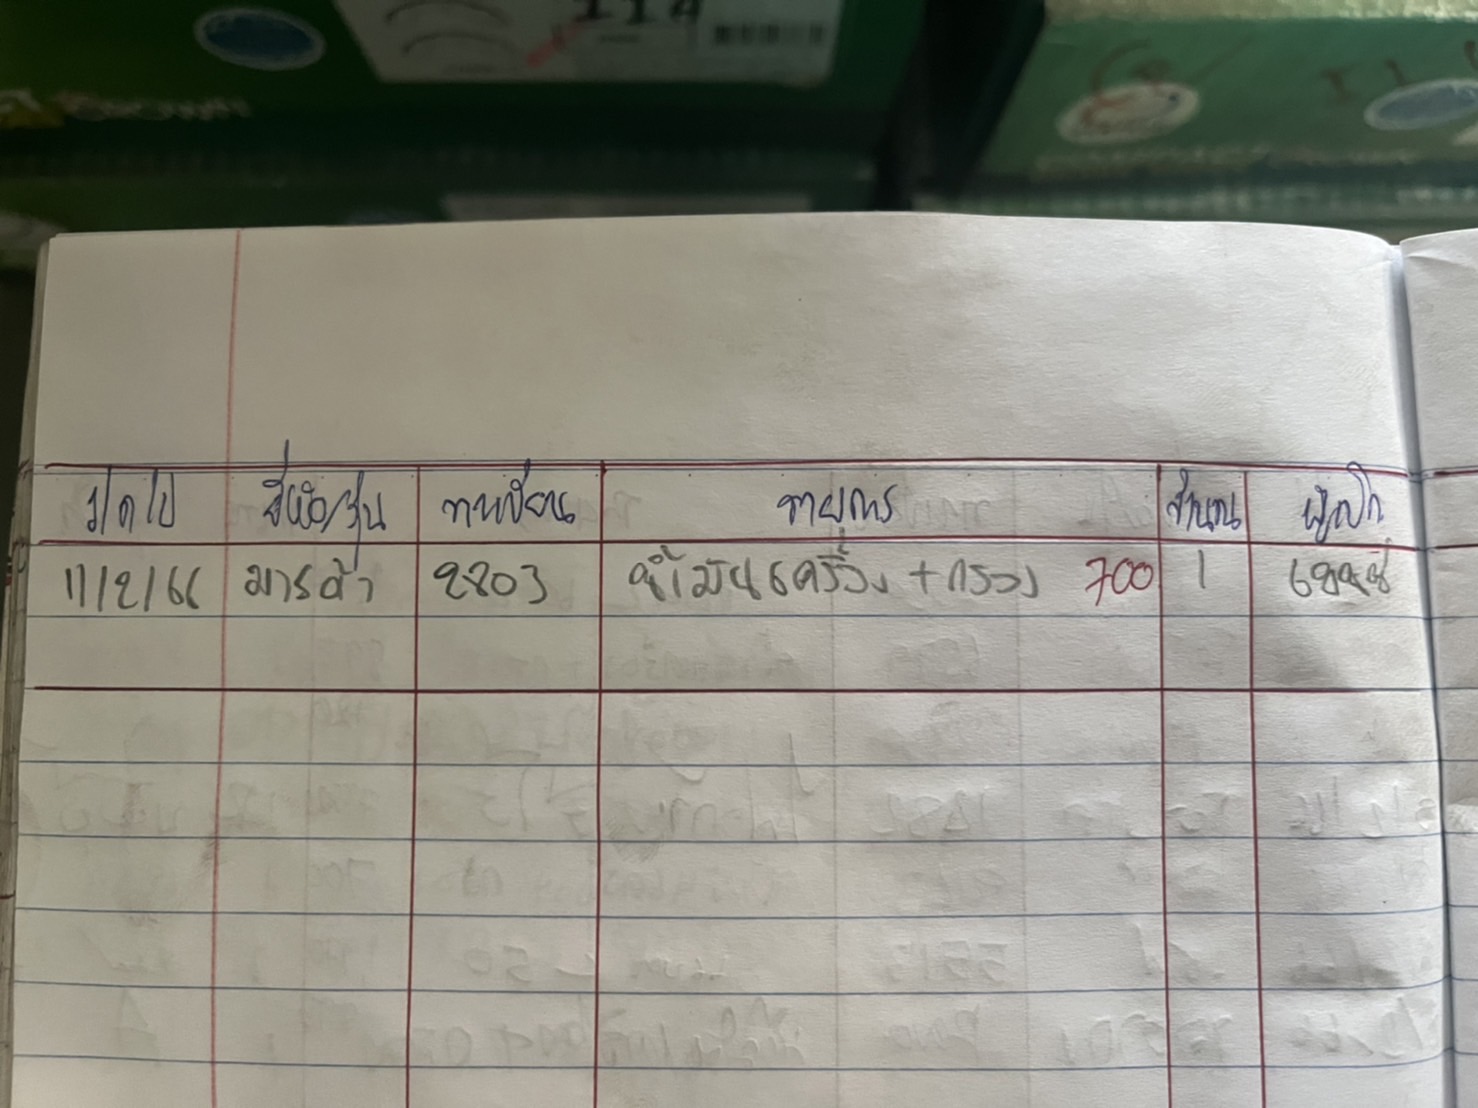 ว/ด/ป ยี่ห้อ/รุ่น ทะเบียน รายการ จำนวน ผู้เบิก
11/2/66 มาสด้า 2803 น้ำมันเครื่อง + กรอง 700 1